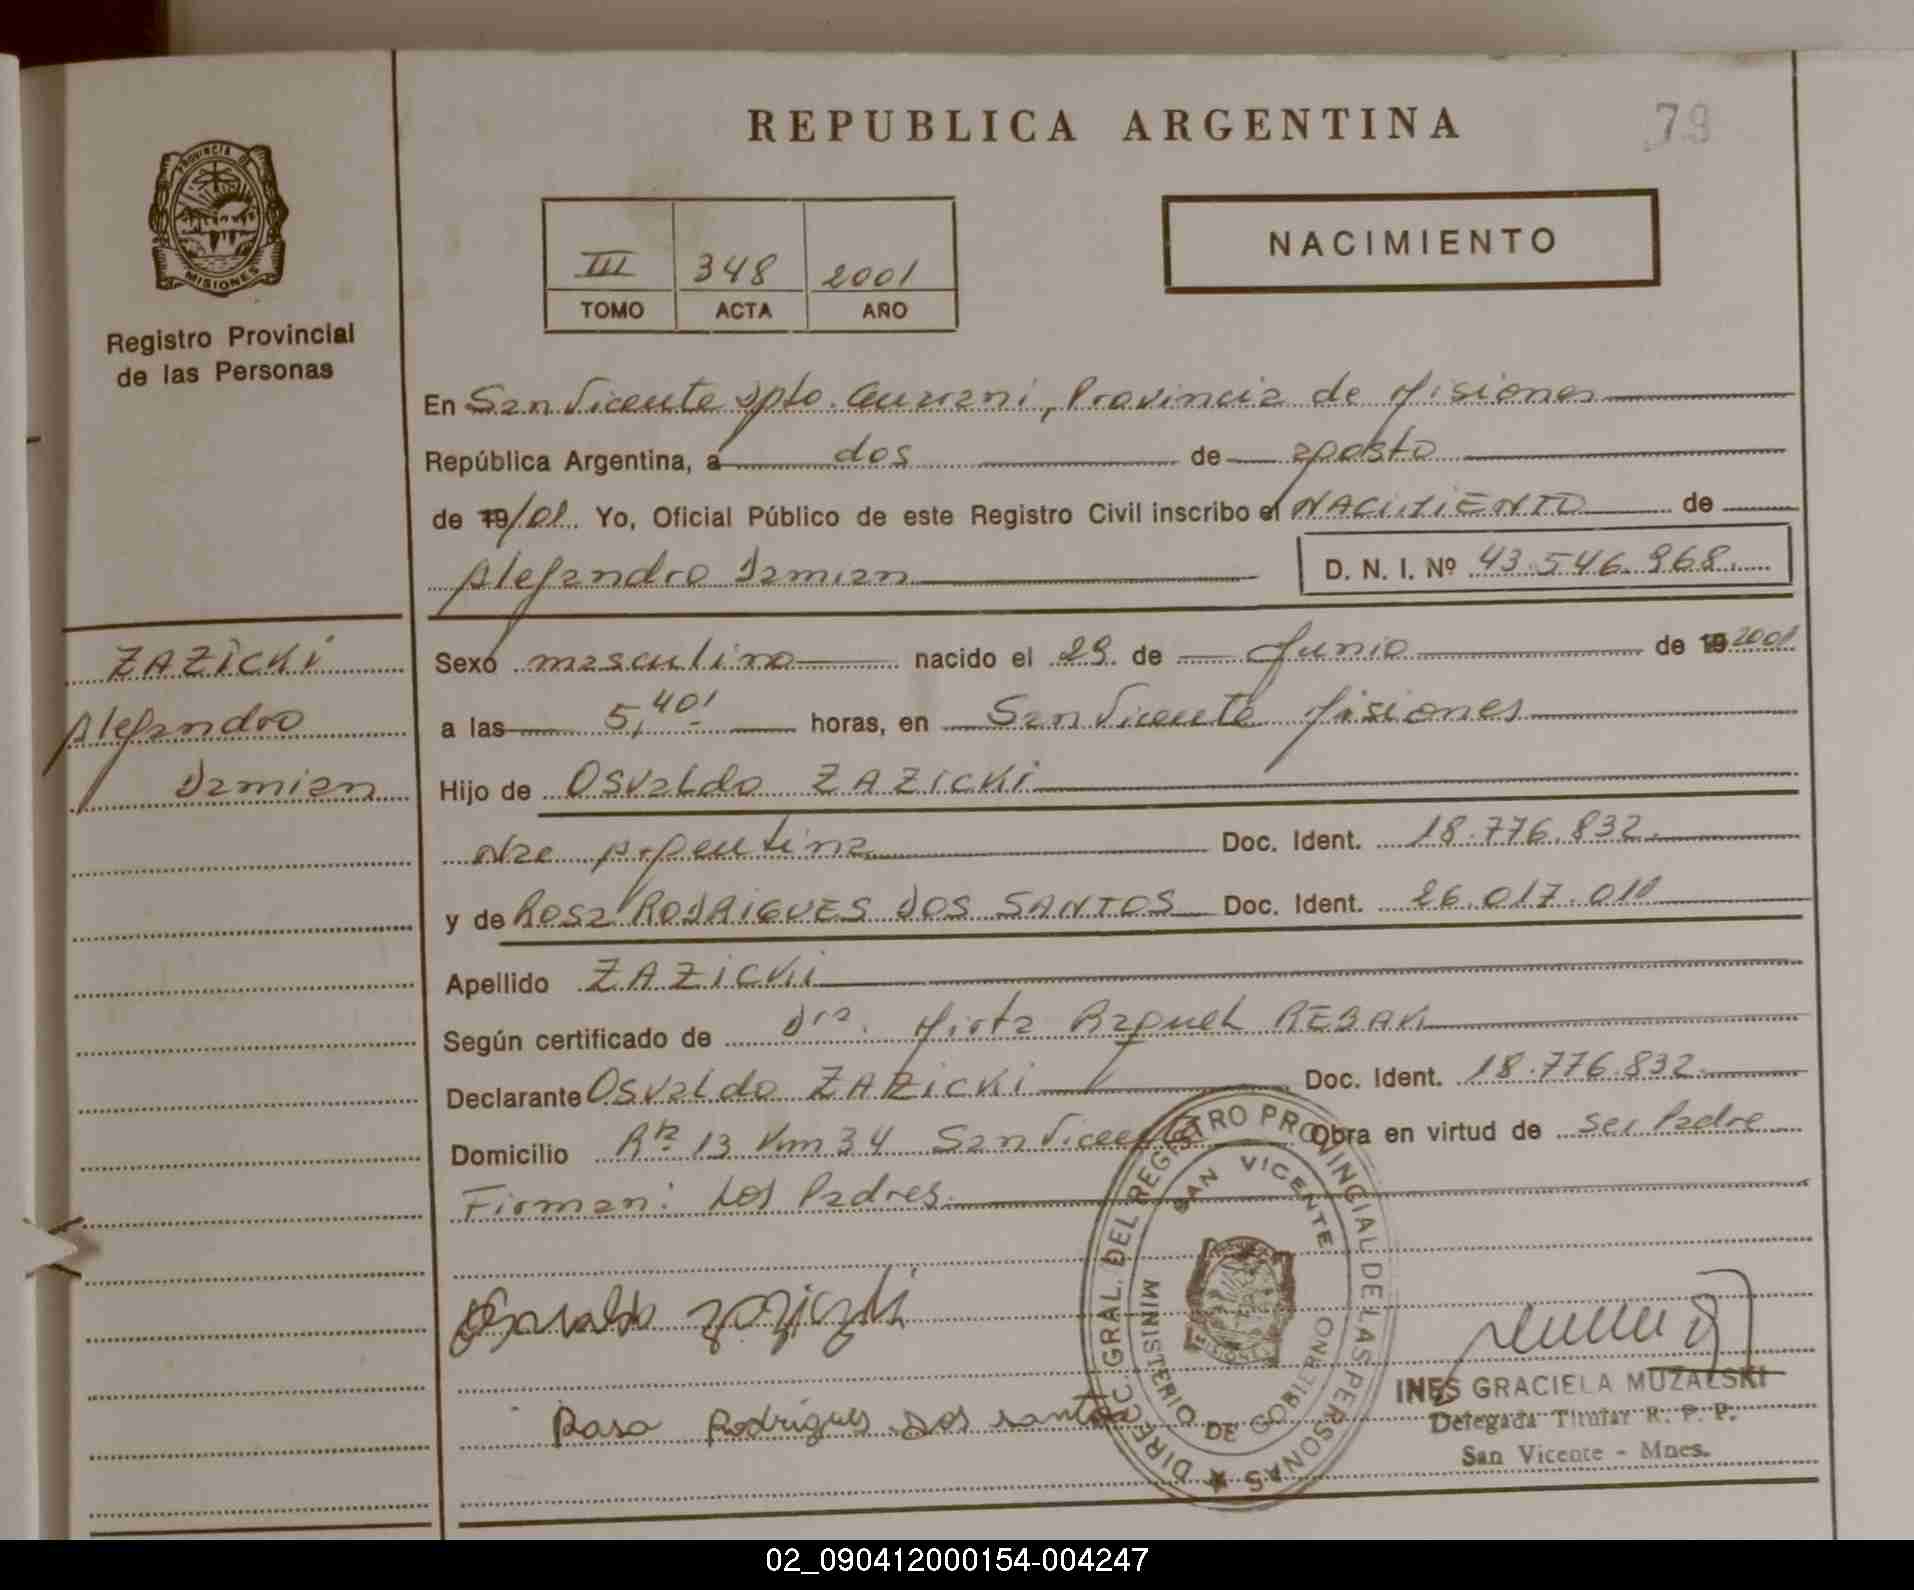 REPUBLICA ARGENTINA
79
PROVINCIA DE
MISIONES
Registro Provincial
de las Personas
III 348 2001
TOMO ACTA AÑO
NACIMIENTO
En San Vicente Dpto. Guarani, Provincia de Misiones
República Argentina, a dos de agosto
de 19/01. Yo, Oficial Público de este Registro Civil inscribo el NACIMIENTO de
Alejandro Damian D. N. I. Nº 43.546.968
ZAZICKI
Alejandro
Damian
Sexo masculino nacido el 29 de Junio de 19 2001
a las 5,40' horas, en San Vicente Misiones
Hijo de Osvaldo ZAZICKI
Nac Argentina Doc. Ident. 18.776.832.
y de Rosa RODRIGUES DOS SANTOS Doc. Ident. 26.017.011
Apellido ZAZICKI
Según certificado de Dra. Mirta Raquel REBAK
Declarante Osvaldo ZAZICKI Doc. Ident. 18.776.832.
Domicilio Rta 13 Km 34 San Vicente Obra en virtud de ser Padre
Firman: Los Padres.
Osvaldo Zazicki
Rosa Rodrigues Dos santos
DIRECC. GRAL. DEL REGISTRO PROVINCIAL DE LAS PERSONAS
SAN VICENTE
MINISTERIO DE GOBIERNO
MISIONES
INES GRACIELA MUZALSKI
Delegada Titular R. P. P.
San Vicente - Mnes.
02_090412000154-004247